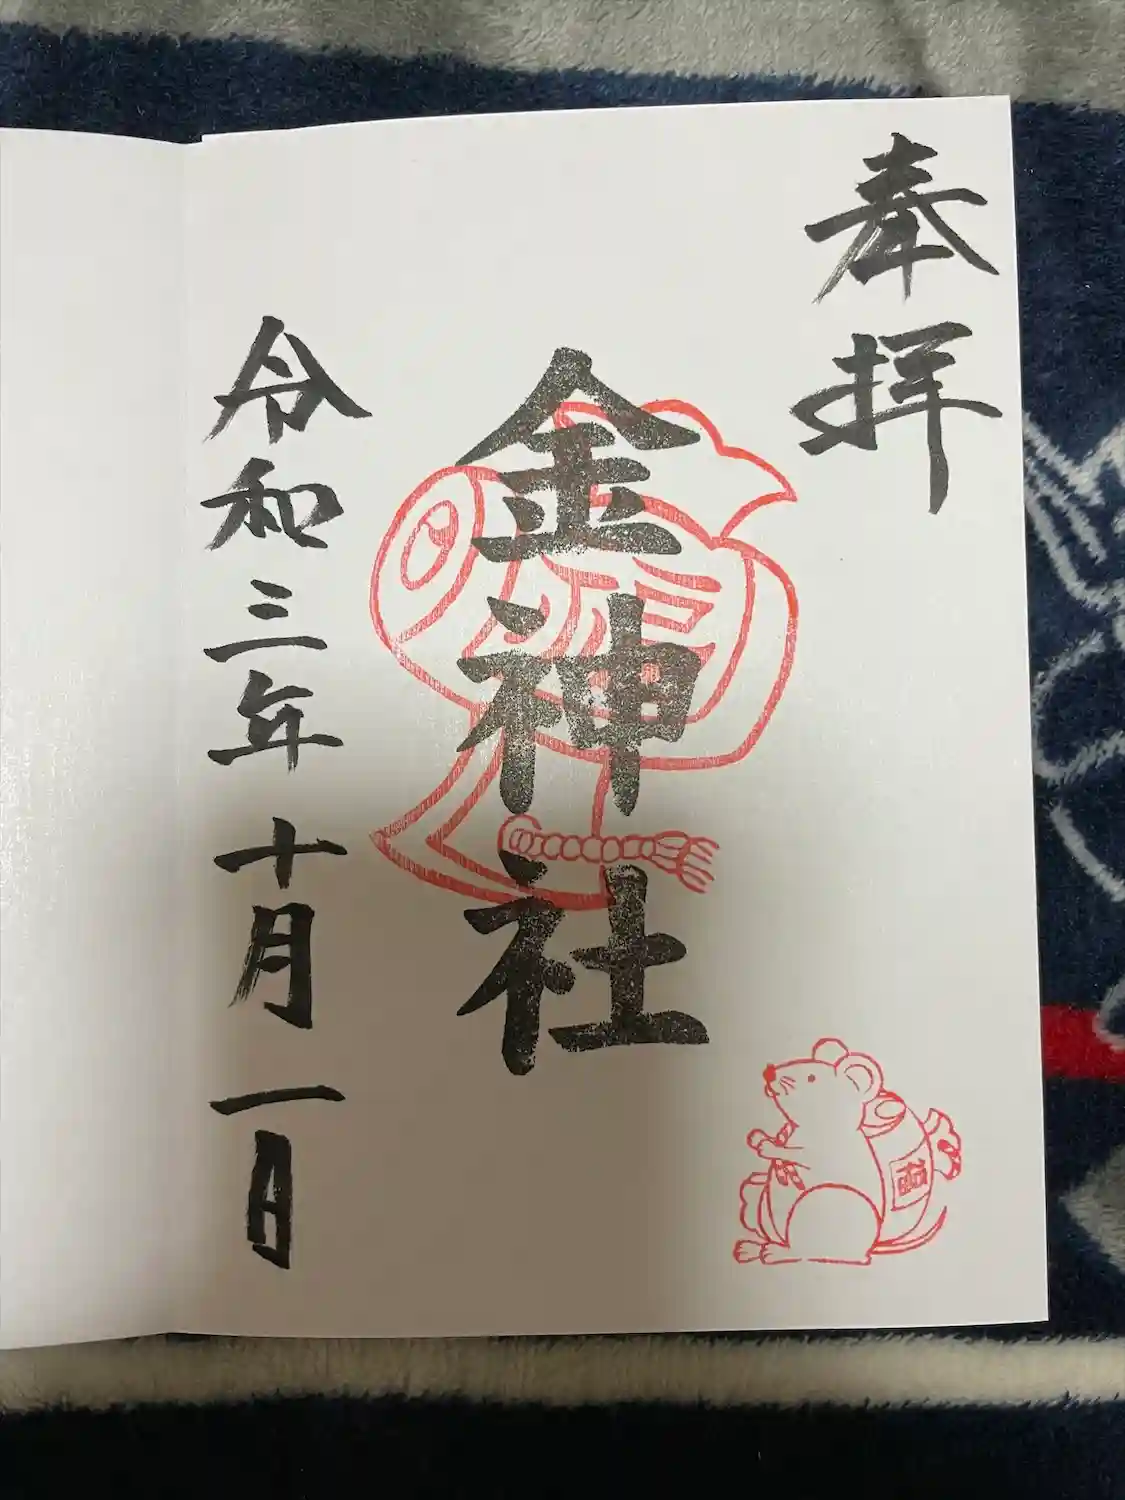 奉拝
金神社
福
令和三年十月一日
福